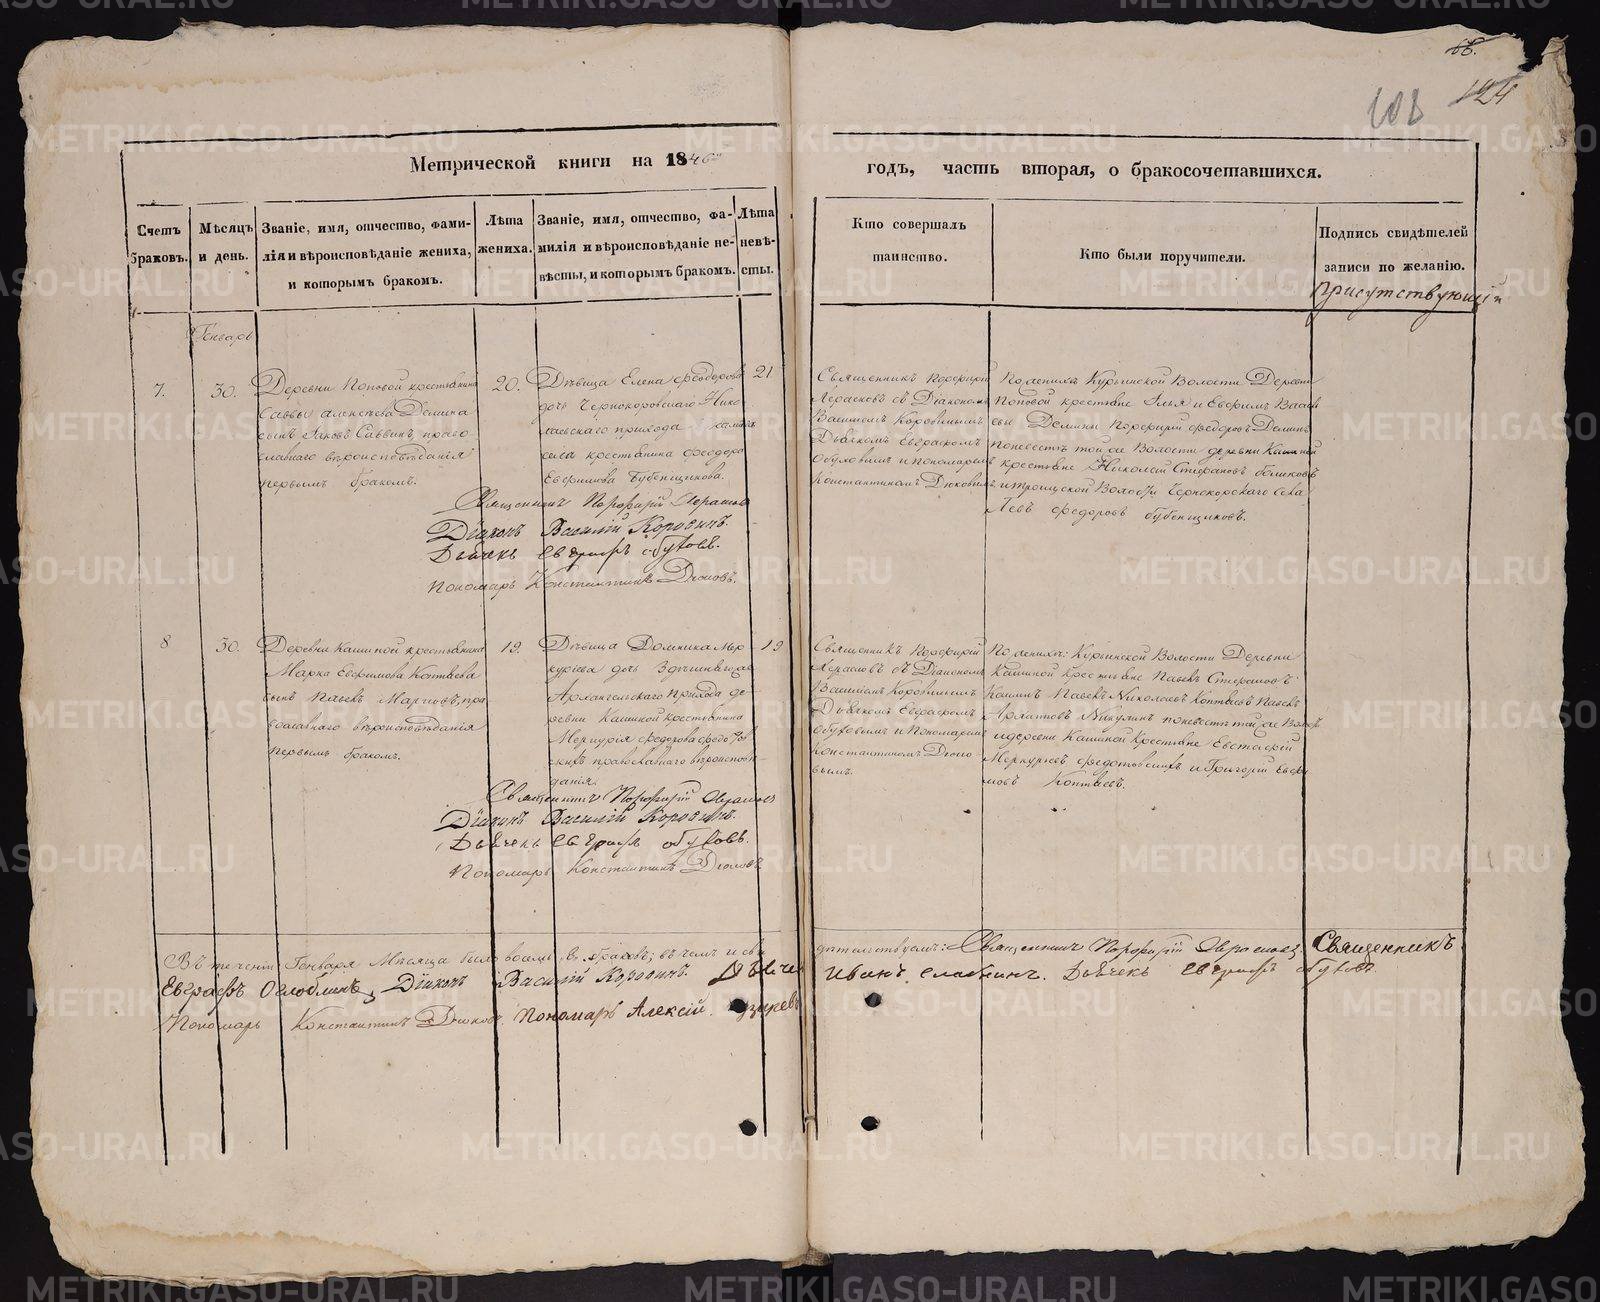 68.
124
108
Метрической книги на 1846й годъ, часть вторая, о бракосочетавшихся.
Счетъ браковъ.
Мѣсяцъ и день.
Званіе, имя, отчество, фами-
лія и вѣроисповѣданіе жениха,
и которымъ бракомъ.
Лѣта
жениха.
Званіе, имя, отчество, фа-
милія и вѣроисповѣданіе не-
вѣсты, и которымъ бракомъ.
Лѣта
невѣ-
сты.
Кто совершалъ
таинство.
Кто были поручители.
Подпись свидѣтелей
записи по желанію.
Присутствующій
Генварь
7.
30.
Деревни Поповой крестьянина
Саввы Алексѣева Демина
сынъ Іаковъ Саввинъ, право-
славнаго вѣроисповѣданія
первымъ бракомъ.
20.
Дѣвица Елена Феодорова
дочь Чернокоровскаго Нико-
лаевскаго прихода
села крестьянина Феодора
Евфимова Бубенщикова.
21
Священникъ Порфирій
съ Діакономъ
Василіемъ Коровинымъ
Дьячкомъ Евграфомъ
Обуховымъ и пономаремъ
Константиномъ Дюковымъ
По женихѣ Курьинской Волости Деревни
Поповой крестьяне Илья и Евфимъ
Демины Порфирій Федоровъ Деминъ
по невестѣ той же Волости деревни
крестьяне Николай Стефановъ
и Троицкой Волости Чернокорскаго Села
Левъ Федоровъ Бубенщиковъ.
Священникъ Порфирій
Діаконъ Василій Коровинъ.
Дьячекъ Евграфъ Обуховъ.
Пономарь Константинъ Дюковъ.
8
30.
Деревни Кашиной крестьянина
Марка Евфимова Коптяева
сынъ Павелъ Марковъ, пра-
вославнаго вѣроисповѣданія
первымъ бракомъ.
19.
Дѣвица Домника Мер-
куріева дочь Здѣшняго же
Архангельскаго Прихода де-
ревни Кашиной крестьянина
Меркурія Федорова Федотов-
скихъ православнаго вѣроисповѣ-
данія.
19
Священникъ Порфирій
съ Діакономъ
Василіемъ Коровинымъ
Дьячкомъ Евграфомъ
Обуховымъ и Пономаремъ
Константиномъ Дюко-
вымъ.
По женихѣ: Курьинской Волости Деревни
Кашиной Крестьяне Павелъ Стефановъ
Кашинъ Павелъ Николаевъ Коптяевъ Павелъ
Никулинъ по невестѣ той же Волости
и деревни Кашиной Крестьяне Евстафій
Меркурьевъ Федотовскихъ и Григорій Евфи-
мовъ Коптяевъ.
Священникъ Порфирій
Діаконъ Василій Коровинъ.
Дьячекъ Евграфъ Обуховъ.
Пономарь Константинъ Дюковъ
Въ теченіи Генваря Мѣсяца было восемь, 8, браковъ; въ чемъ и сви-
дѣтельствуемъ: Священникъ Порфирій Священникъ
Евграфъ Оглоблинъ, Діаконъ Василій Коровинъ. Дьячекъ
Иванъ Дьячекъ Евграфъ Обуховъ
Пономарь Константинъ Дюковъ. Пономарь Алексій
METRIKI.GASO-URAL.RU